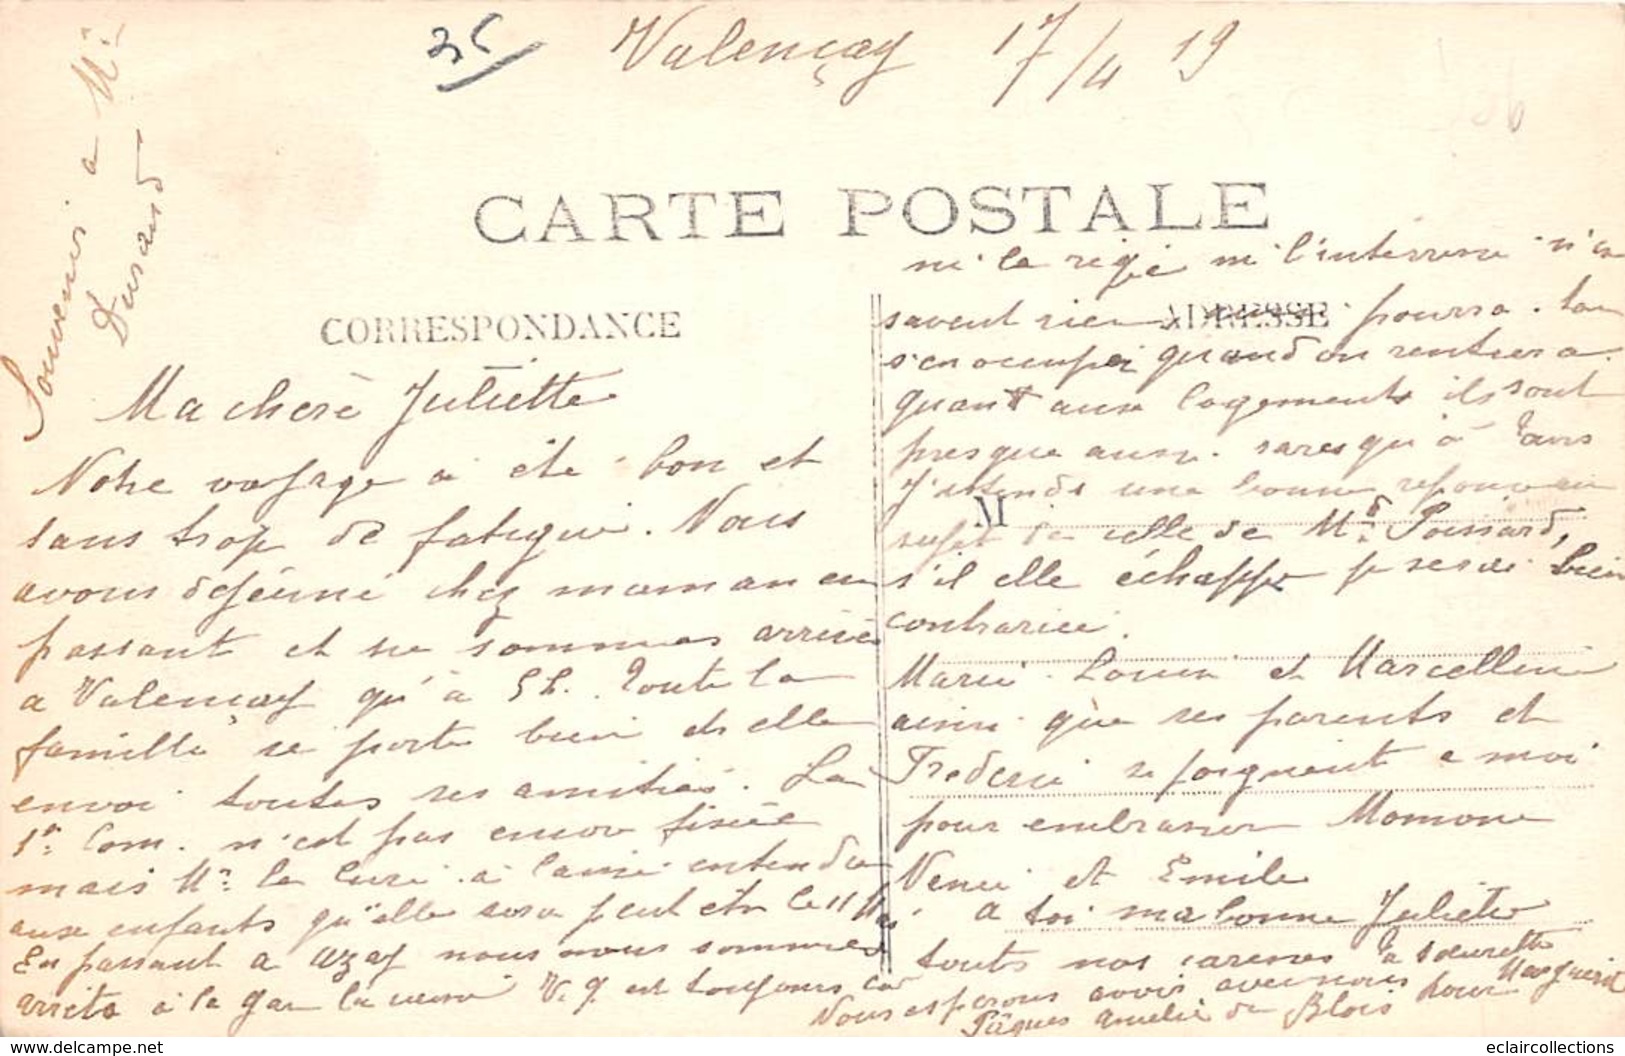 35
Valençay 17/4 19
Souvenir a Mr
Durand
CARTE POSTALE
CORRESPONDANCE
Ma chere Juliette
Notre voyage a été bon et
sans trop de fatigue. Nous
avons dejeuné chez maman en
passant et ne sommes arrivés
a Valençay qu'à 5h. Toute la
famille se porte bien et elle
envoi toutes ses amitiés. La
1re Com. n'est pas encor fixée
mais Mr le Curé a laissé entendre
aux enfants qu'elle sera peut etre le 11 Mai
En passant a azay nous nous sommes
arrêté à la gare la cuves V. q. est toujours
ni la regie ni n'en
savent rien ADRESSE pourra
s'en occuper quand on rentrera.
quant aux logements ils sont
presque aussi rares qu'à Paris
J'attends une bonne reponse au
M
sujet de celle de Md Poissard,
s'il elle échappe je serai bien
contrariée.
Marie Louise et Marcelline
ainsi que ses parents et
Frederic se joignent a moi
pour embrasser Momone
Renée et Emile
a toi ma bonne Juliette
toute nos caresses Ta soeurette
Marguerite
Nous esperons avoir avec nous pour
Pâques Amelie de Blois
eclaircollections
www.delcampe.net